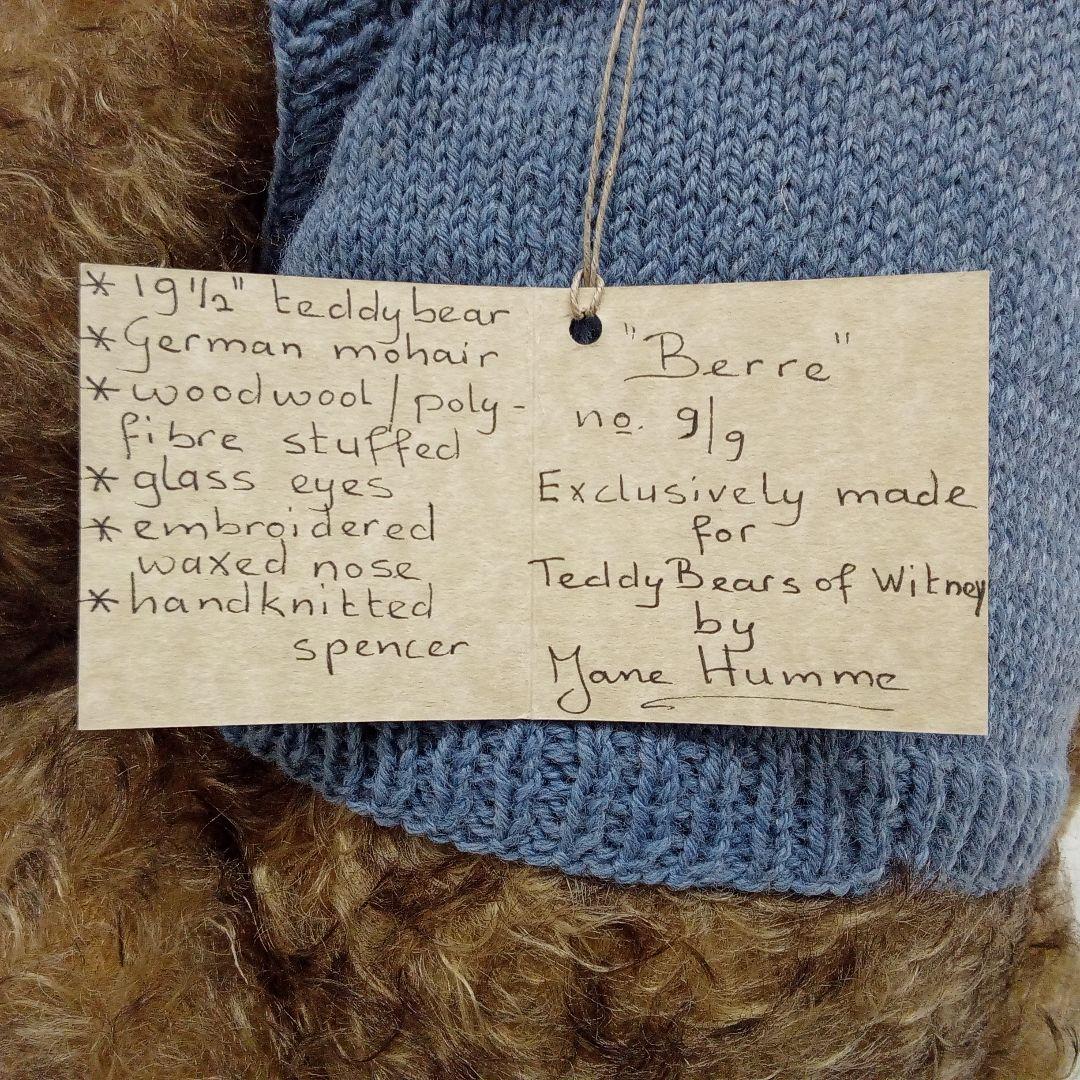 * 19 1/2" teddybear
* German mohair
* woodwool/poly-
fibre stuffed
* glass eyes
* embroidered
waxed nose
* handknitted
spencer
"Berre"
no. 9/9
Exclusively made
for
Teddy Bears of Witney
by
Jane Humme